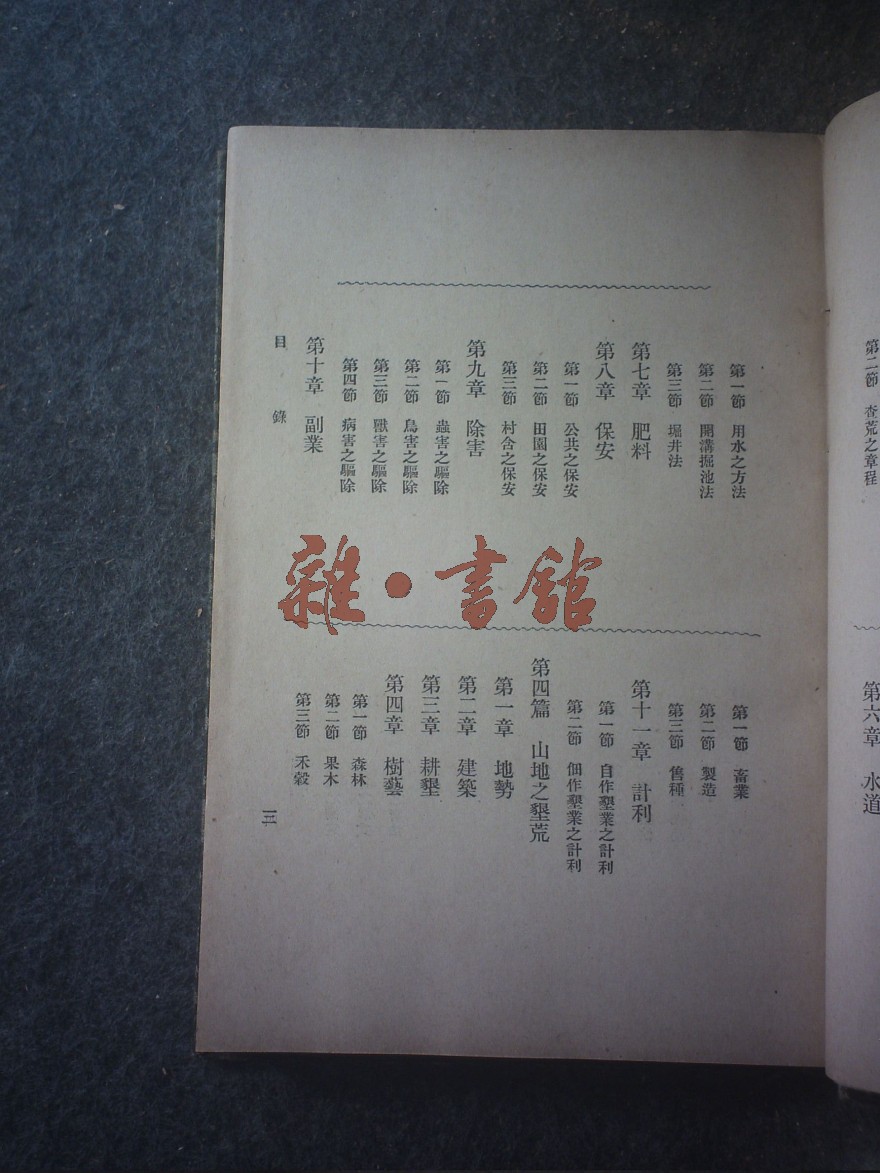 第二節 查荒之章程
第六章 水道
第一節 用水之方法
第二節 開溝掘池法
第三節 堀井法
第七章 肥料
第八章 保安
第一節 公共之保安
第二節 田園之保安
第三節 村舍之保安
第九章 除害
第一節 蟲害之驅除
第二節 鳥害之驅除
第三節 獸害之驅除
第四節 病害之驅除
第十章 副業
目 錄
第一節 畜業
第二節 製造
第三節 售種
第十一章 計利
第一節 自作墾業之計利
第二節 佃作墾業之計利
第四篇 山地之墾荒
第一章 地勢
第二章 建築
第三章 耕墾
第四章 樹藝
第一節 森林
第二節 果木
第三節 禾穀
三
雜·書館